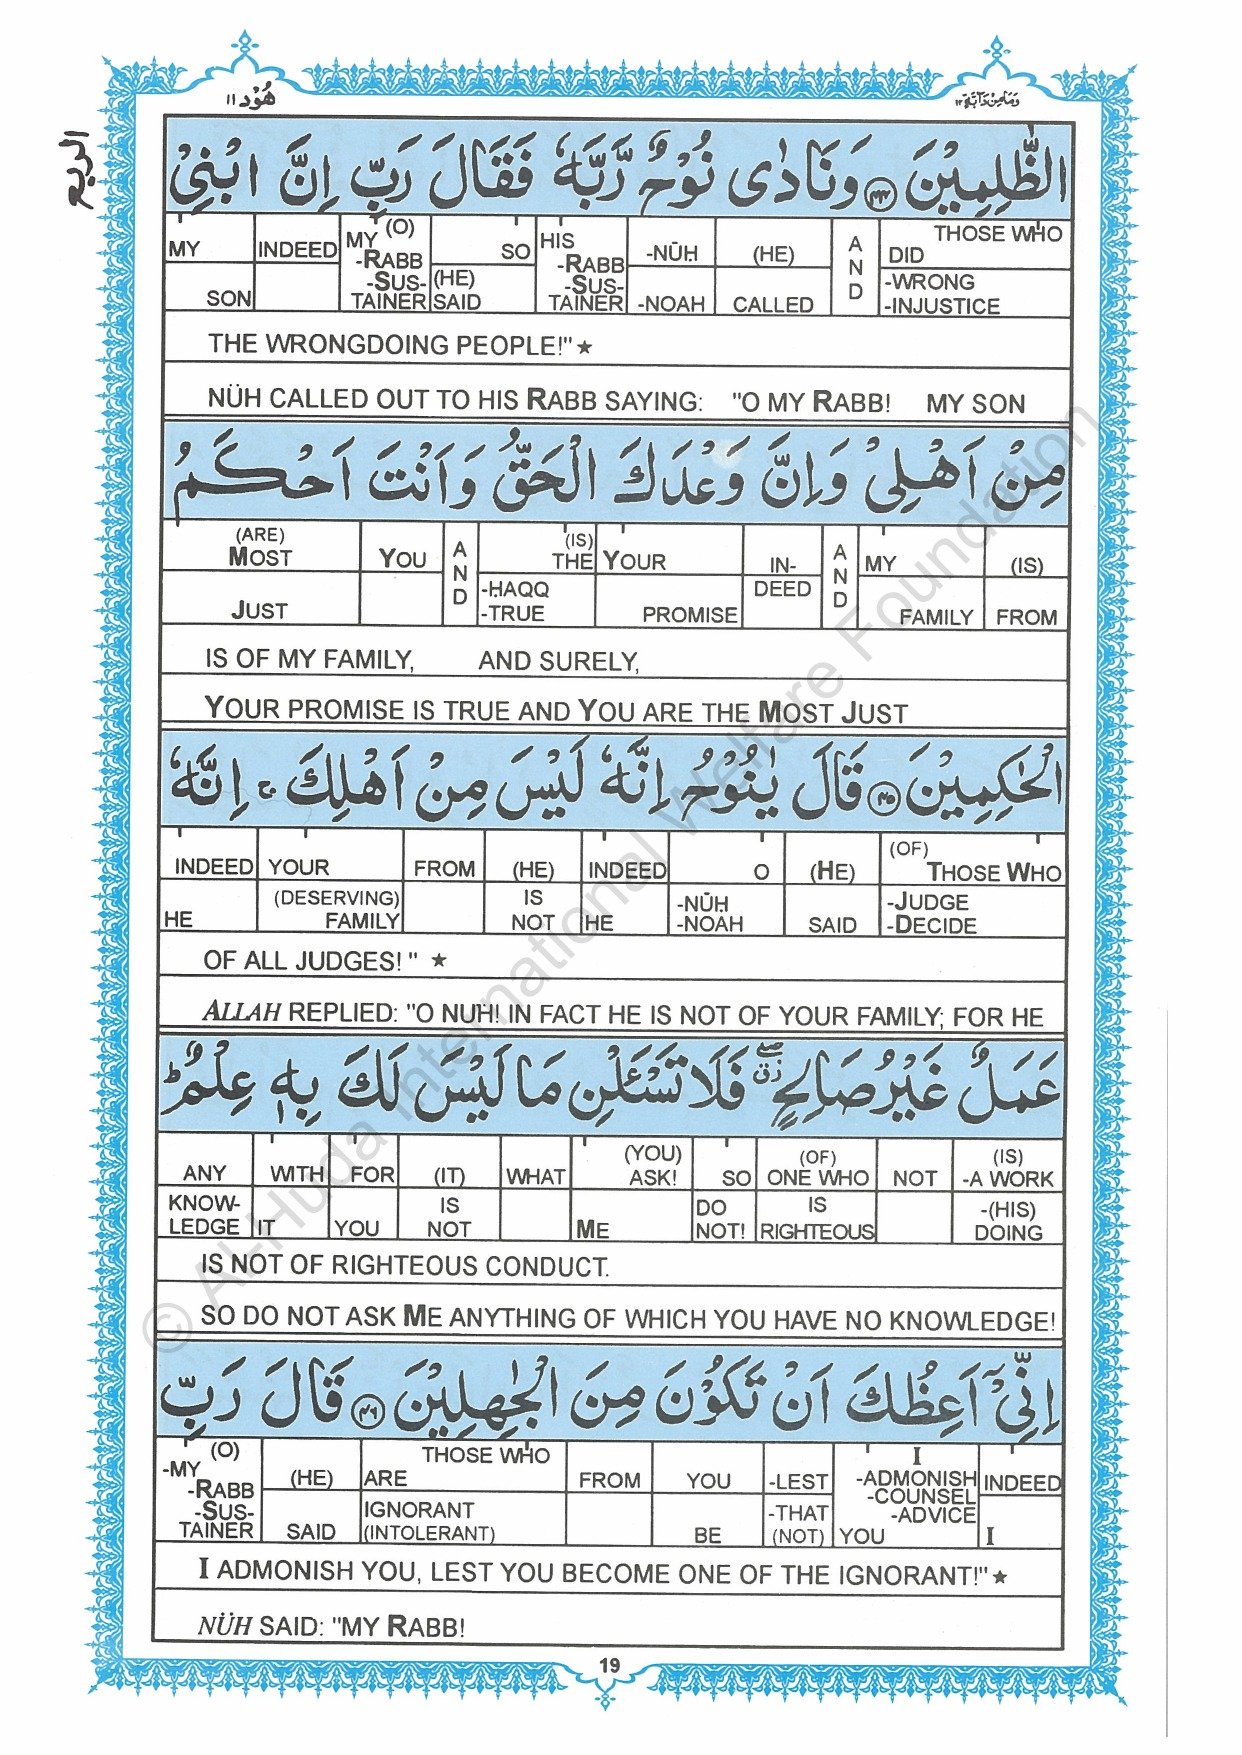 هُوْد ١١
وَمَا مِنْ دَآبَّة ١٢
الربع
الظّٰلِمِيْنَ ۴۴ وَنَادٰى نُوْحٌ رَّبَّهٗ فَقَالَ رَبِّ اِنَّ ابْنِيْ
MY INDEED MY (O) -RABB -SUS-TAINER SO HIS -RABB -SUS-TAINER -NŪḤ (HE) AND THOSE WHO DID
SON (HE) SAID -NOAH CALLED -WRONG -INJUSTICE
THE WRONGDOING PEOPLE!"★
NÜH CALLED OUT TO HIS RABB SAYING: "O MY RABB! MY SON
مِنْ اَهْلِيْ وَاِنَّ وَعْدَكَ الْحَقُّ وَاَنْتَ اَحْكَمُ
(ARE) MOST YOU AND (IS) THE YOUR IN- AND MY (IS)
JUST -ḤAQQ -TRUE PROMISE DEED FAMILY FROM
IS OF MY FAMILY, AND SURELY,
YOUR PROMISE IS TRUE AND YOU ARE THE MOST JUST
الْحٰكِمِيْنَ ۴۵ قَالَ يٰنُوْحُ اِنَّهٗ لَيْسَ مِنْ اَهْلِكَ ۚ اِنَّهٗ
INDEED YOUR FROM (HE) INDEED O (HE) (OF) THOSE WHO
HE (DESERVING) FAMILY IS NOT HE -NŪḤ -NOAH SAID -JUDGE -DECIDE
OF ALL JUDGES! " ★
ALLAH REPLIED: "O NUH! IN FACT HE IS NOT OF YOUR FAMILY; FOR HE
عَمَلٌ غَيْرُ صَالِحٍ فَلَا تَسْـَٔلْنِ مَا لَيْسَ لَكَ بِهٖ عِلْمٌ ؕ
ANY WITH FOR (IT) WHAT (YOU) ASK! SO (OF) ONE WHO NOT (IS) -A WORK
KNOW-LEDGE IT YOU IS NOT ME DO NOT! IS RIGHTEOUS -(HIS) DOING
IS NOT OF RIGHTEOUS CONDUCT.
SO DO NOT ASK ME ANYTHING OF WHICH YOU HAVE NO KNOWLEDGE!
اِنِّيْٓ اَعِظُكَ اَنْ تَكُوْنَ مِنَ الْجٰهِلِيْنَ ۴۶ قَالَ رَبِّ
(O) -MY -RABB -SUS-TAINER (HE) THOSE WHO ARE FROM YOU -LEST I -ADMONISH -COUNSEL -ADVICE INDEED
SAID IGNORANT (INTOLERANT) BE -THAT (NOT) YOU I
I ADMONISH YOU, LEST YOU BECOME ONE OF THE IGNORANT!"★
NÜH SAID: "MY RABB!
19
© Al-Huda International Welfare Foundation